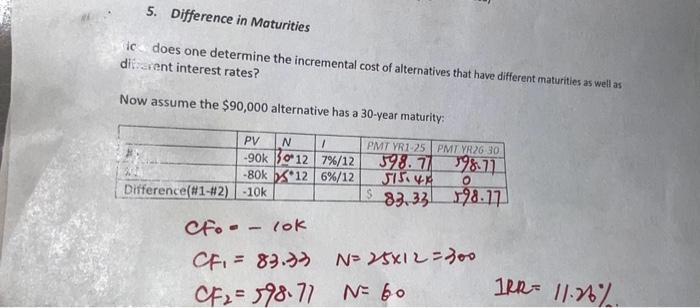 5. Difference in Maturities
does one determine the incremental cost of alternatives that have different maturities as well as
different interest rates?
Now assume the $90,000 alternative has a 30-year maturity:
PV N I PMT YR1-25 PMT YR26-30
-90k 30*12 7%/12 598.77 598.77
-80k 25*12 6%/12 515.44 0
Difference(#1-#2) -10k $ 83.33 598.77
CF0 = - 10K
CF1 = 83.33 N= 25x12=300
CF2= 598.77 N= 60 IRR= 11.26%